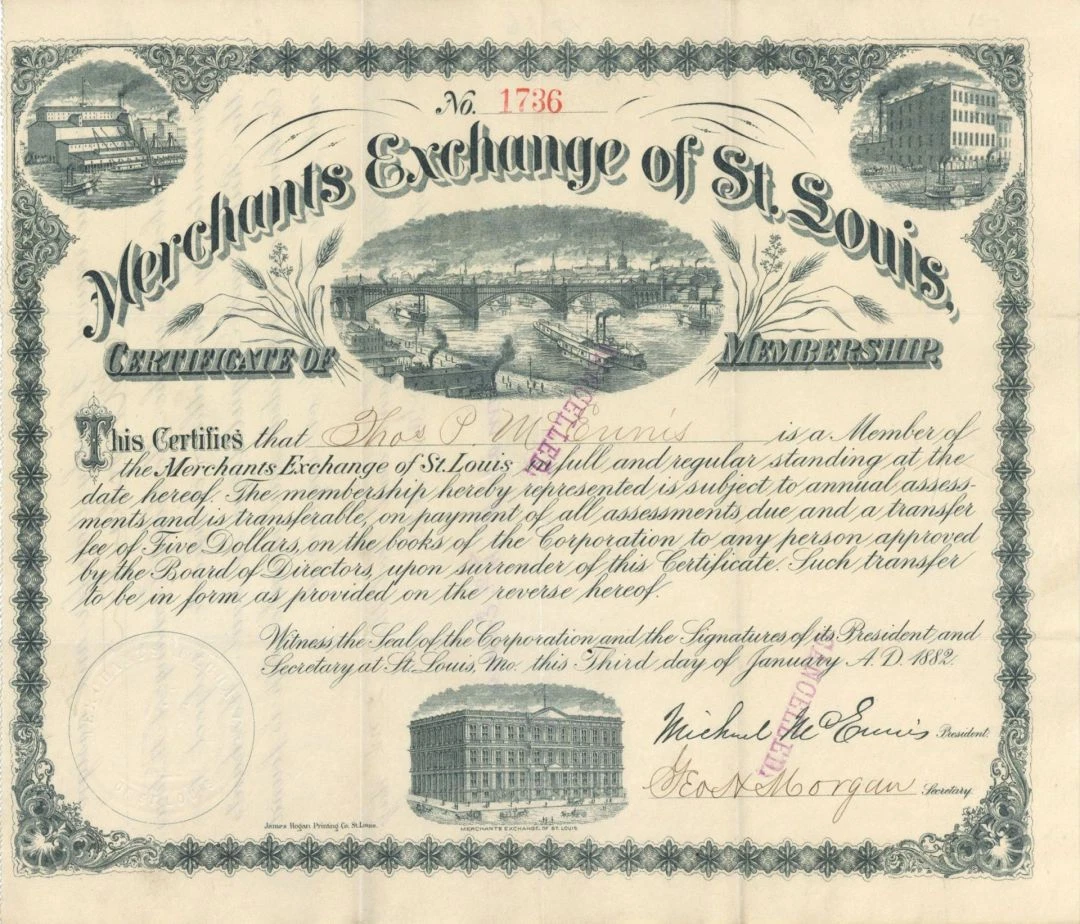 No. 1736
Merchants Exchange of St. Louis,
CERTIFICATE OF MEMBERSHIP.
This Certifies that Thos P. McEnnis is a Member of
the Merchants Exchange of St. Louis in full and regular standing at the
date hereof. The membership hereby represented is subject to annual assess-
ments and is transferable, on payment of all assessments due and a transfer
fee of Five Dollars, on the books of the Corporation to any person approved
by the Board of Directors, upon surrender of this Certificate. Such transfer
to be in form as provided on the reverse hereof.
CANCELLED.
Witness the Seal of the Corporation and the Signatures of its President and
Secretary at St. Louis, Mo. this Third day of January A.D. 1882.
CANCELLED.
Michael McEnnis President.
Geo H Morgan Secretary.
James Hogan Printing Co. St. Louis.
MERCHANTS EXCHANGE, OF ST. LOUIS